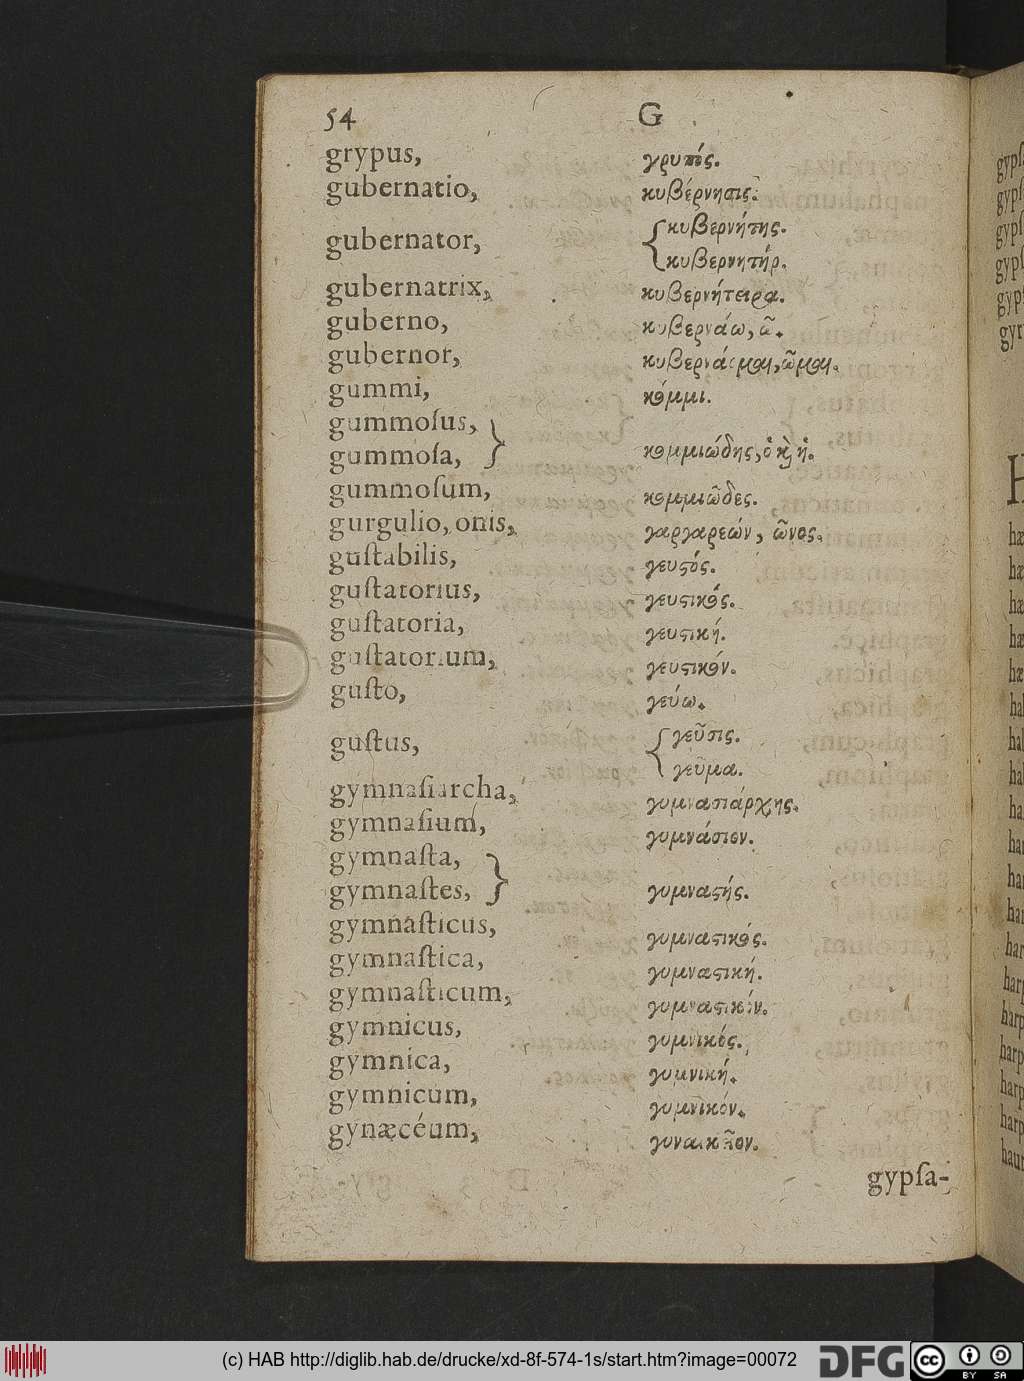 54 G
grypus, γρυπός.
gubernatio, κυβέρνησις.
gubernator, { κυβερνήτης.
κυβερνητήρ.
gubernatrix, κυβερνήτειρα.
guberno, κυβερνάω, ῶ.
gubernor, κυβερνάομαι, ῶμαι.
gummi, κόμμι.
gummoſus, }
gummoſa, κομμιώδης, ὁ κὶ ἡ.
gummoſum, κομμιῶδες.
gurgulio, onis, γαργαρεών, ῶνος.
guſtabilis, γευϛός.
guſtatorius, γευϛικός.
guſtatoria, γευϛική.
guſtatorium, γευϛικόν.
guſto, γεύω.
guſtus, { γεῦσις.
γεῦμα.
gymnaſiarcha, γυμνασιάρχης.
gymnaſium, γυμνάσιον.
gymnaſta, }
gymnaſtes, γυμναϛής.
gymnaſticus, γυμναϛικός.
gymnaſtica, γυμναϛική.
gymnaſticum, γυμναϛικόν.
gymnicus, γυμνικός.
gymnica, γυμνική.
gymnicum, γυμνικόν.
gynæcéum, γυναικεῖον.
gypſa-
(c) HAB http://diglib.hab.de/drucke/xd-8f-574-1s/start.htm?image=00072
DFG
cc BY SA